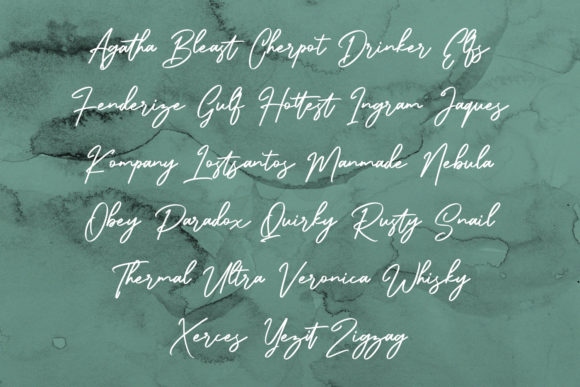 Agatha Bleast Cherpot Drinker Elfs
Fenderize Gulf Hottest Ingram Jaques
Kompany Lostsantos Manmade Nebula
Obey Paradox Quirky Rusty Snail
Thermal Ultra Veronica Whisky
Xerces Yezit Zigzag